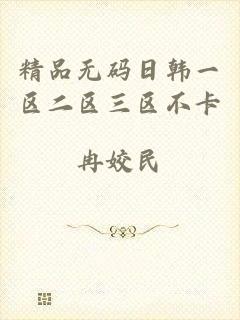 精品无码日韩一
区二区三区不卡
冉姣民